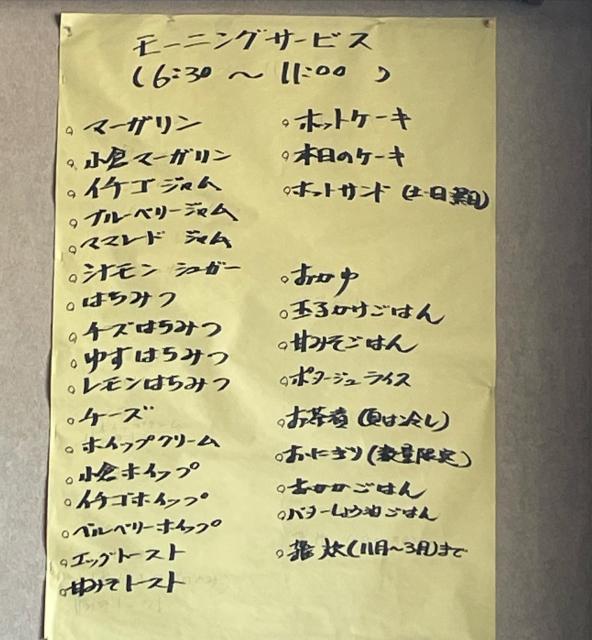 モーニングサービス
(6:30 ~ 11:00 )
。マーガリン
。小倉マーガリン
。イチゴジャム
。ブルーベリージャム
。ママレードジャム
。シナモンシュガー
。はちみつ
。チーズはちみつ
。ゆずはちみつ
。レモンはちみつ
。チーズ
。ホイップクリーム
。小倉ホイップ
。イチゴホイップ
。ベルベリーホイップ
。エッグトースト
。甘みそトースト
。ホットケーキ
。本日のケーキ
。ホットサンド (土・日祭日)
。おかゆ
。玉子かけごはん
。甘みそごはん
。ポタージュライス
。お茶漬 (夏は冷し)
。おにぎり (数量限定)
。おかかごはん
。バターしょうゆごはん
。雑炊 (11月~3月)まで